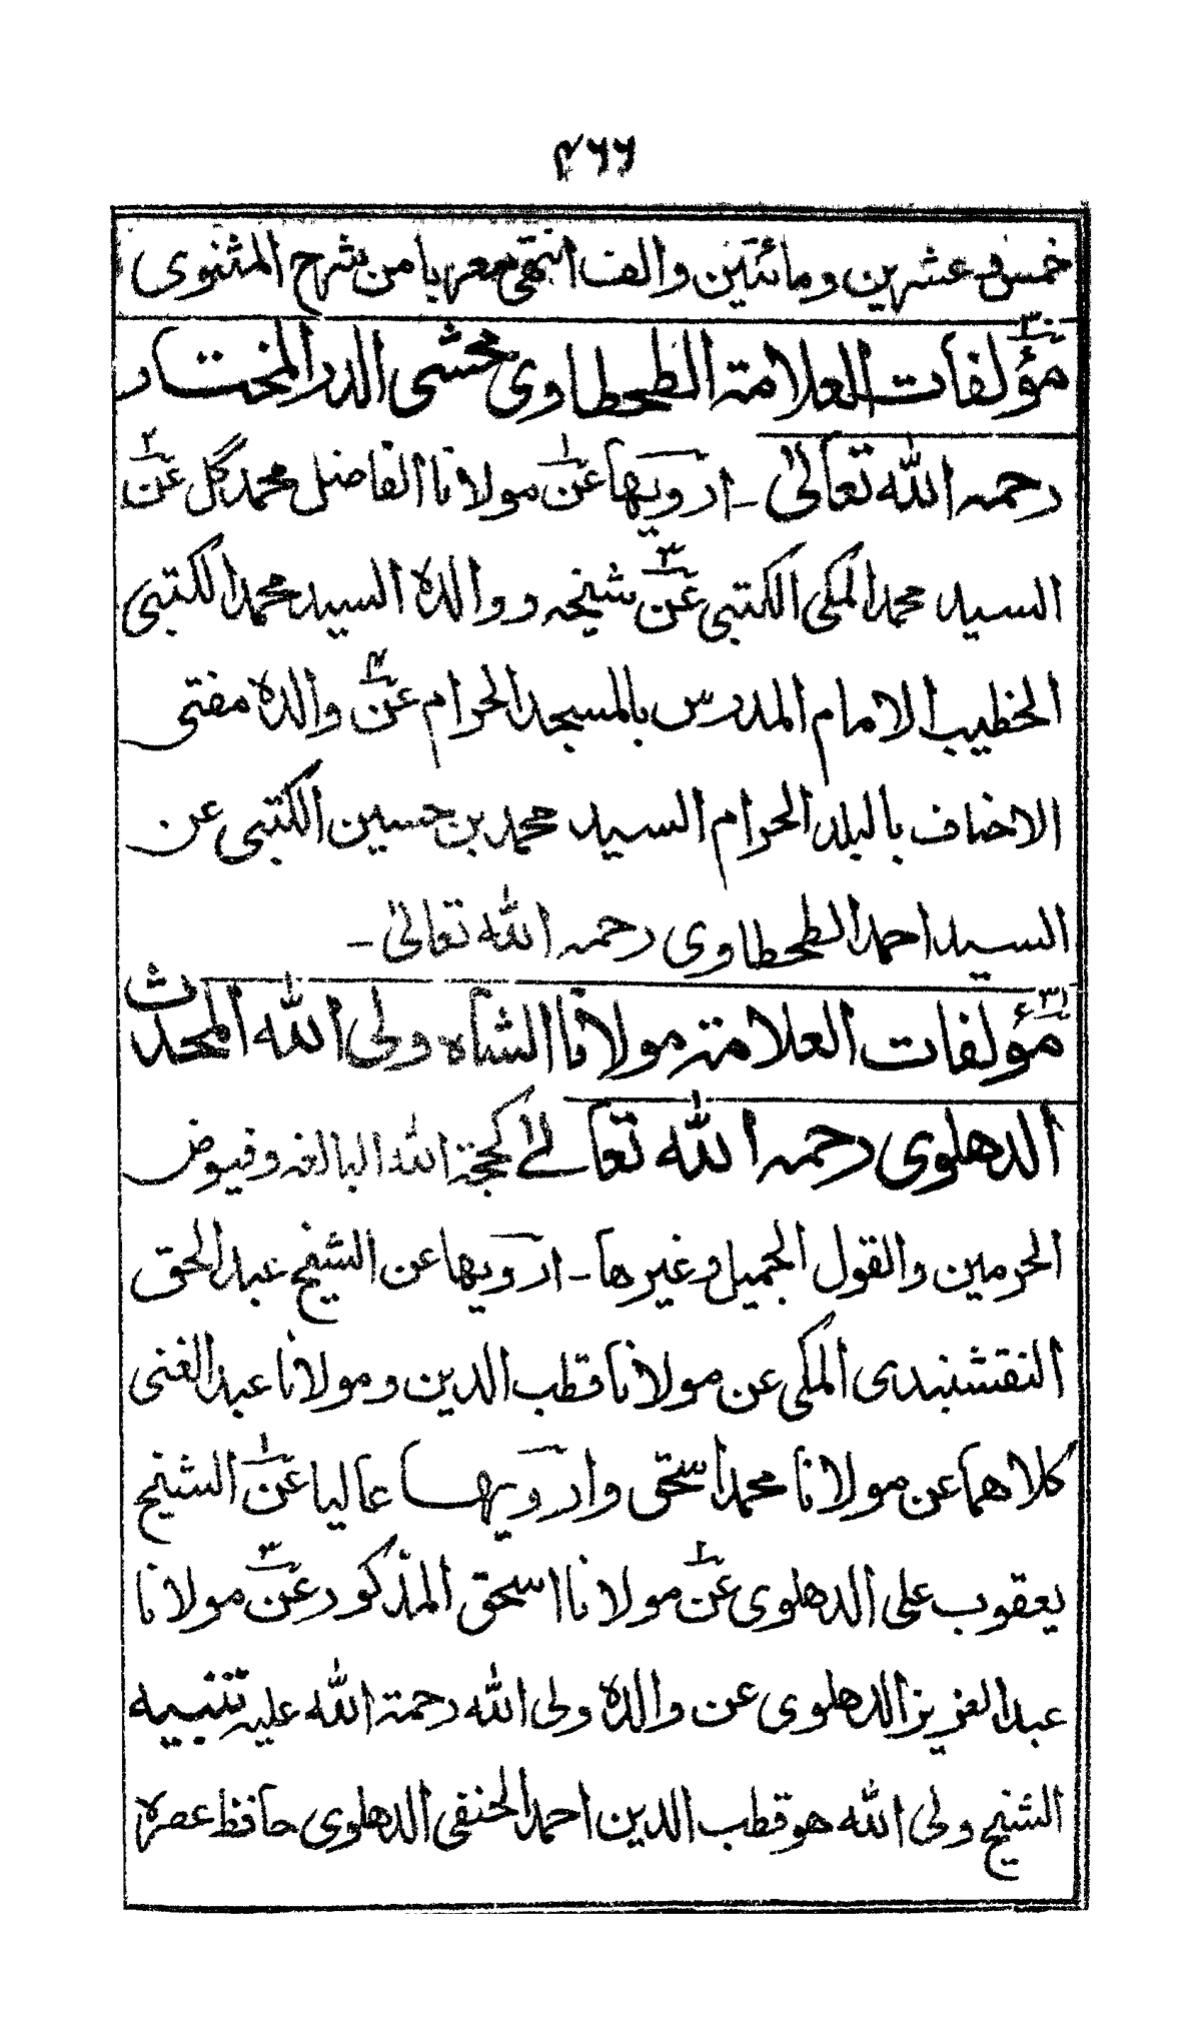 ۴۶۶
خمس و عشرين ومائتين والف انتهى معربا من شرح المثنوى
۳۰ مؤلفات العلامة الطحطاوى محشى الدر المختار
رحمه الله تعالىٰ ـ ارويها عن۱ مولانا الفاضل محمد گل عن۲
السيد محمد المكى الكتبى عن۳ شيخه ووالده السيد محمد الكتبى
الخطيب الامام المدرس بالمسجد الحرام عن۴ والده مفتى
الاحناف بالبلد الحرام السيد محمد بن حسين الكتبى عن
السيد احمد الطحطاوى رحمه الله تعالىٰ ـ
۳۱ مؤلفات العلامة مولانا الشاه ولى الله المحدث
الدهلوى رحمه الله تعالےٰ كحجة الله البالغه وفيوض
الحرمين والقول الجميل وغيرها ـ ارويها عن الشيخ عبد الحق
النقشبندى المكى عن مولانا قطب الدين ومولانا عبد الغنى
كلاهما عن مولانا محمد اسحٰق وارويهـا عاليا عن۱ الشيخ
يعقوب على الدهلوى عن۲ مولانا اسحق المذكور عن۳ مولانا
عبد العزيز الدهلوى عن والده ولى الله رحمة الله عليه تنبيه
الشيخ ولى الله هو قطب الدين احمد الحنفى الدهلوى حافظ عصره